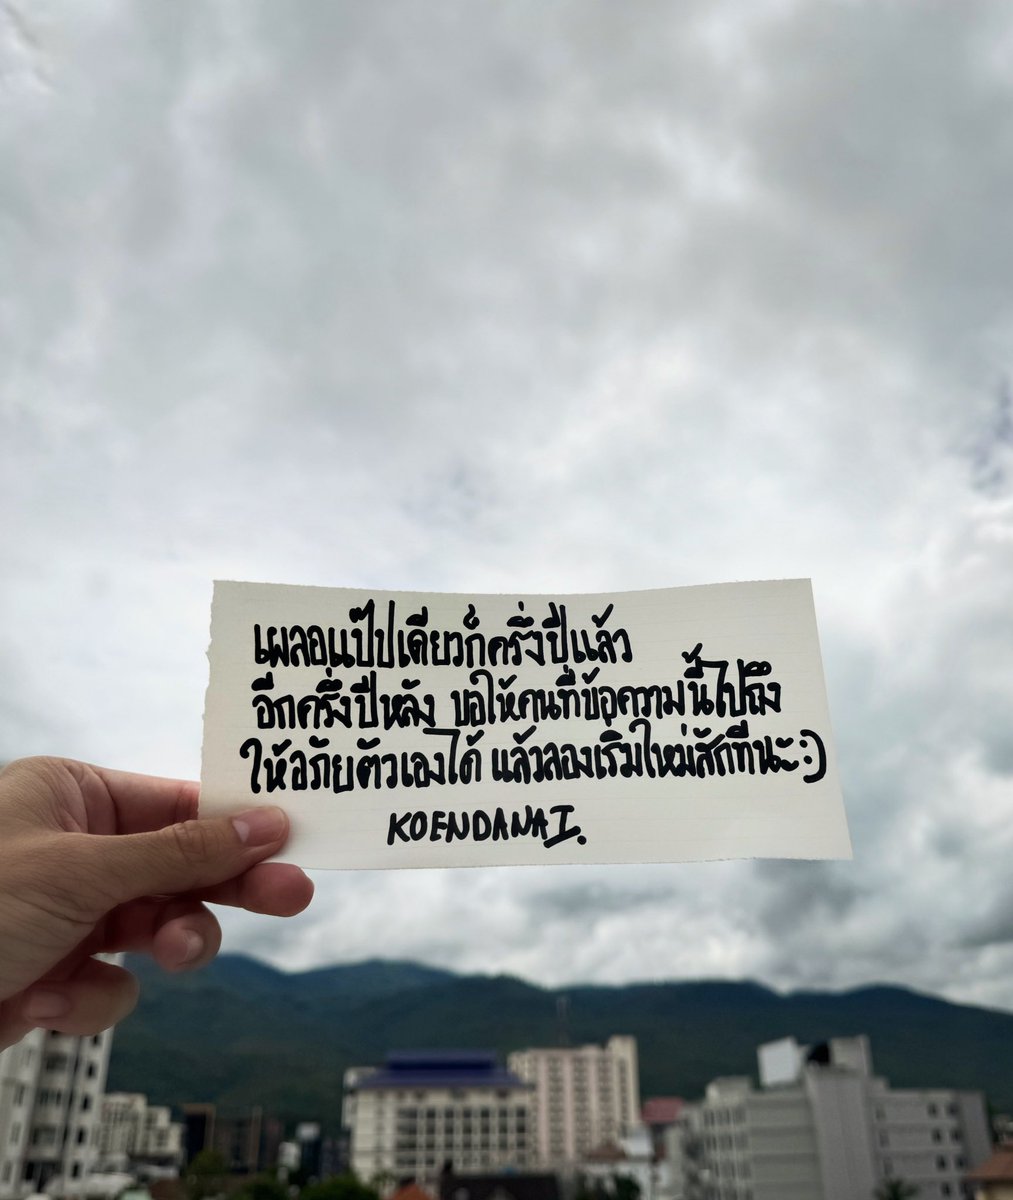 เผลอแป๊ปเดียวก็ครึ่งปีแล้ว
อีกครึ่งปีหลัง ขอให้คนที่ข้อความนี้ไปถึง
ให้อภัยตัวเองได้ แล้วลองเริ่มใหม่สักทีนะ:)
KOENDANAI.